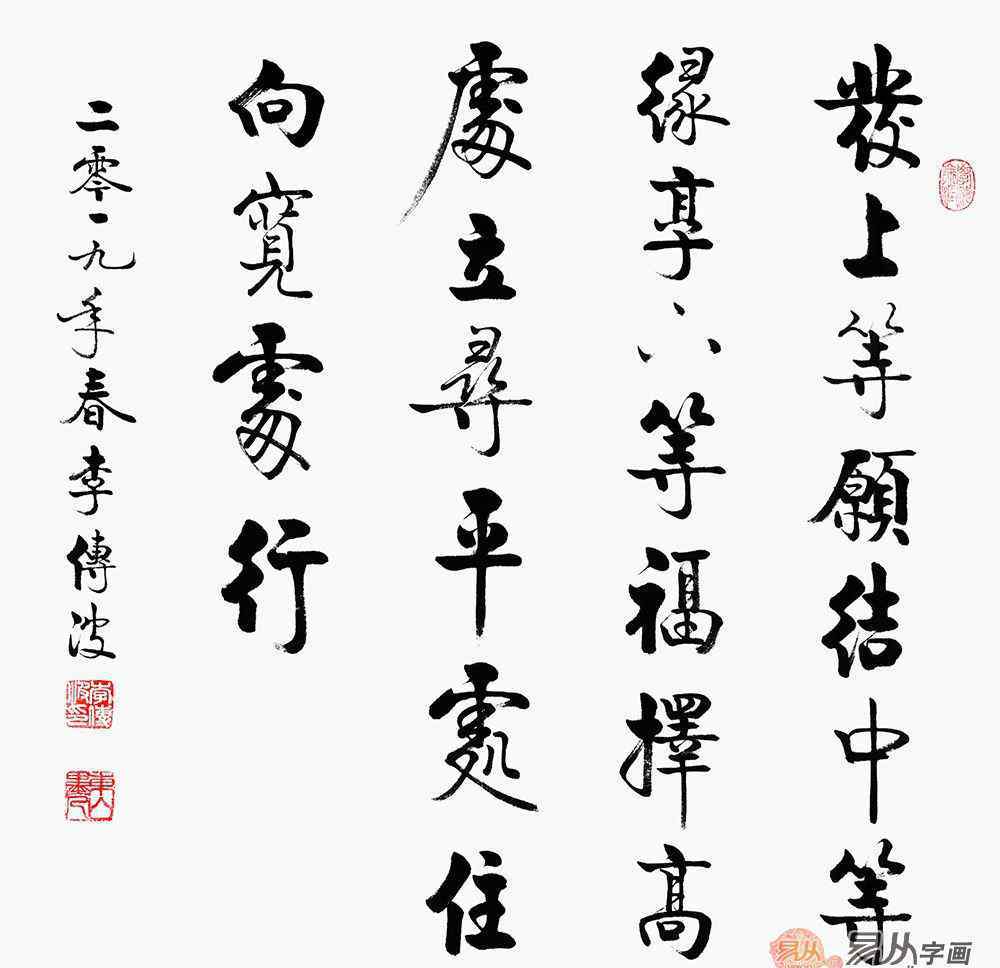 發上等願結中等
緣享下等福擇高
處立尋平處住
向寬處行
二零一九年春李傳波
李傳波印
易从字画